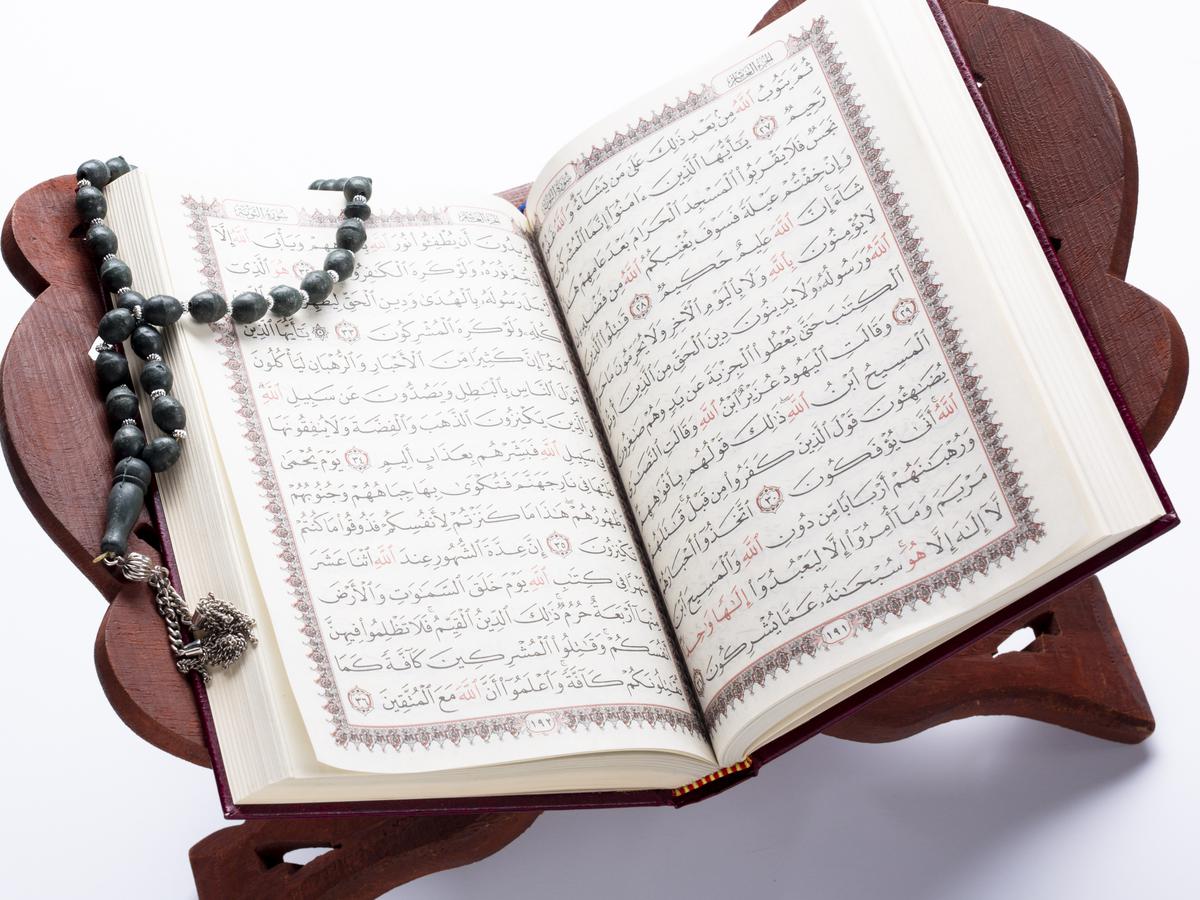 الجُزْءُ العَاشِرُ سُورَةُ التَّوْبَةِ
ثُمَّ يَتُوبُ ٱللَّهُ مِنۢ بَعْدِ ذَٰلِكَ عَلَىٰ مَن يَشَآءُ وَٱللَّهُ
رَّحِيمٌ ٢٧ يَٰٓأَيُّهَا ٱلَّذِينَ ءَامَنُوٓا۟ إِنَّمَا ٱلْمُشْرِكُونَ
نَجَسٌ فَلَا يَقْرَبُوا۟ ٱلْمَسْجِدَ ٱلْحَرَامَ بَعْدَ عَامِهِمْ هَٰذَا
وَإِنْ خِفْتُمْ عَيْلَةً فَسَوْفَ يُغْنِيكُمُ ٱللَّهُ مِن فَضْلِهِۦٓ إِن
شَآءَ إِنَّ ٱللَّهَ عَلِيمٌ حَكِيمٌ ٢٨ قَٰتِلُوا۟ ٱلَّذِينَ
لَا يُؤْمِنُونَ بِٱللَّهِ وَلَا بِٱلْيَوْمِ ٱلْءَاخِرِ وَلَا يُحَرِّمُونَ مَا حَرَّمَ
ٱللَّهُ وَرَسُولُهُۥ وَلَا يَدِينُونَ دِينَ ٱلْحَقِّ مِنَ ٱلَّذِينَ أُوتُوا۟
ٱلْكِتَٰبَ حَتَّىٰ يُعْطُوا۟ ٱلْجِزْيَةَ عَن يَدٍ وَهُمْ صَٰغِرُونَ
٢٩ وَقَالَتِ ٱلْيَهُودُ عُزَيْرٌ ٱبْنُ ٱللَّهِ وَقَالَتِ ٱلنَّصَٰرَى
ٱلْمَسِيحُ ٱبْنُ ٱللَّهِ ذَٰلِكَ قَوْلُهُم بِأَفْوَٰهِهِمْ
يُضَٰهِـُٔونَ قَوْلَ ٱلَّذِينَ كَفَرُوا۟ مِن قَبْلُ قَٰتَلَهُمُ
ٱللَّهُ أَنَّىٰ يُؤْفَكُونَ ٣٠ ٱتَّخَذُوٓا۟ أَحْبَارَهُمْ
وَرُهْبَٰنَهُمْ أَرْبَابًا مِّن دُونِ ٱللَّهِ وَٱلْمَسِيحَ ٱبْنَ
مَرْيَمَ وَمَآ أُمِرُوٓا۟ إِلَّا لِيَعْبُدُوٓا۟ إِلَٰهًا وَٰحِدًا
لَّآ إِلَٰهَ إِلَّا هُوَ سُبْحَٰنَهُۥ عَمَّا يُشْرِكُونَ
١٩١
الجُزْءُ العَاشِرُ سُورَةُ التَّوْبَةِ
يُرِيدُونَ أَن يُطْفِـُٔوا۟ نُورَ ٱللَّهِ وَيَأْبَى ٱللَّهُ إِلَّآ
أَن يُتِمَّ نُورَهُۥ وَلَوْ كَرِهَ ٱلْكَٰفِرُونَ هُوَ ٱلَّذِىٓ
أَرْسَلَ رَسُولَهُۥ بِٱلْهُدَىٰ وَدِينِ ٱلْحَقِّ
كُلِّهِۦ وَلَوْ كَرِهَ ٱلْمُشْرِكُونَ ٣٣ يَٰٓأَيُّهَا ٱلَّذِينَ
ءَامَنُوٓا۟ إِنَّ كَثِيرًا مِّنَ ٱلْأَحْبَارِ وَٱلرُّهْبَانِ لَيَأْكُلُونَ
أَمْوَٰلَ ٱلنَّاسِ بِٱلْبَٰطِلِ وَيَصُدُّونَ عَن سَبِيلِ ٱللَّهِ
وَٱلَّذِينَ يَكْنِزُونَ ٱلذَّهَبَ وَٱلْفِضَّةَ وَلَا يُنفِقُونَهَا
سَبِيلِ ٱللَّهِ فَبَشِّرْهُم بِعَذَابٍ أَلِيمٍ ٣٤ يَوْمَ يُحْمَىٰ
عَلَيْهَا فِى نَارِ جَهَنَّمَ فَتُكْوَىٰ بِهَا جِبَاهُهُمْ وَجُنُوبُهُمْ
وَظُهُورُهُمْ هَٰذَا مَا كَنَزْتُمْ لِأَنفُسِكُمْ فَذُوقُوا۟ مَا كُنتُمْ
تَكْنِزُونَ ٣٥ إِنَّ عِدَّةَ ٱلشُّهُورِ عِندَ ٱللَّهِ ٱثْنَا عَشَرَ
شَهْرًا فِى كِتَٰبِ ٱللَّهِ يَوْمَ خَلَقَ ٱلسَّمَٰوَٰتِ وَٱلْأَرْضَ
مِنْهَآ أَرْبَعَةٌ حُرُمٌ ذَٰلِكَ ٱلدِّينُ ٱلْقَيِّمُ فَلَا تَظْلِمُوا۟ فِيهِنَّ
أَنفُسَكُمْ وَقَٰتِلُوا۟ ٱلْمُشْرِكِينَ كَآفَّةً كَمَا
يُقَٰتِلُونَكُمْ كَآفَّةً وَٱعْلَمُوٓا۟ أَنَّ ٱللَّهَ مَعَ ٱلْمُتَّقِينَ ٣٦
١٩٢